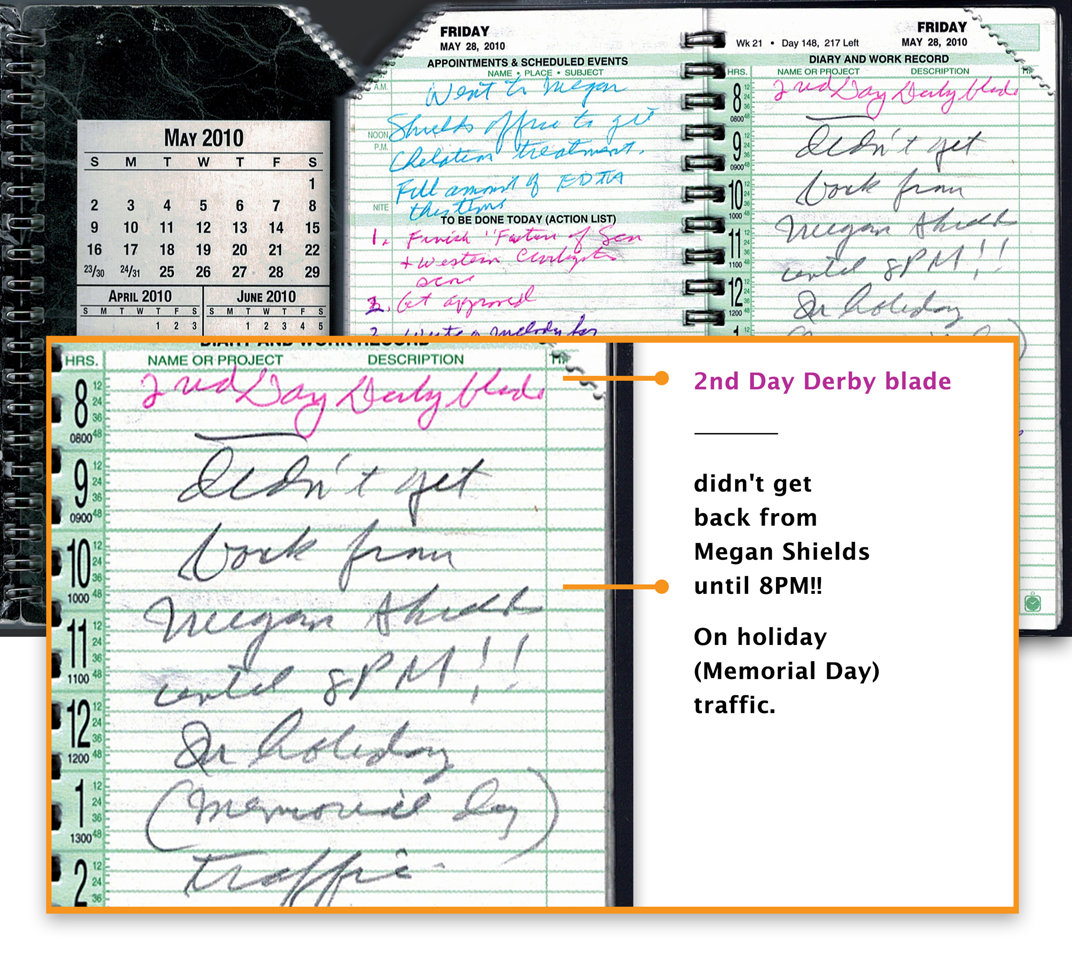 MAY 2010
S M T W T F S
1
2 3 4 5 6 7 8
9 10 11 12 13 14 15
16 17 18 19 20 21 22
23/30 24/31 25 26 27 28 29
APRIL 2010 JUNE 2010
S M T W T F S S M T W T F S
1 2 3 1 2 3 4 5
FRIDAY
MAY 28, 2010
APPOINTMENTS & SCHEDULED EVENTS
NAME • PLACE • SUBJECT
A.M.
Went to Megan
Shields office to get
NOON
P.M.
Chelation treatment.
Full amount of EDTA
NITE
this time
TO BE DONE TODAY (ACTION LIST)
1. Finish
+ Western
2. Get approval
Write a melody for
Wk 21 • Day 148, 217 Left
FRIDAY
MAY 28, 2010
DIARY AND WORK RECORD
HRS. NAME OR PROJECT DESCRIPTION
8 2nd Day Derby blade
0800
9 didn't get
0900
10 back from
1000 Megan Shields
11 until 8PM!!
1100
12 On holiday
1200
1
DIARY AND WORK RECORD
HRS. NAME OR PROJECT DESCRIPTION
8 2nd Day Derby blade
0800
9 didn't get
0900
10 back from
1000
Megan Shields
11
1100 until 8PM!!
12 On holiday
1200
1 (Memorial Day)
1300
2 traffic.
2nd Day Derby blade
didn't get
back from
Megan Shields
until 8PM!!
On holiday
(Memorial Day)
traffic.